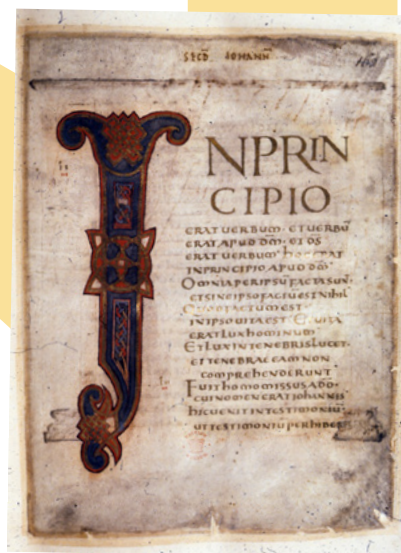 SECD IOHANN
168
INPRIN
CIPIO
ERAT UERBUM· ET UERBŪ
ERAT APUD DM̄· ET DS̄
ERAT UERBUM hOC ERAT
IN PRINCIPIO APUD DM̄
OMNIA PER IPSŪ FACTA SUNT·
ET SINE IPSO FACTU EST NIhIL
QUOD FACTUM EST·
IN IPSO UITA EST· ET UITA
ERAT LUX hOMINUM
ET LUX IN TENEBRIS LUCET·
ET TENEBRAE EAM NON
COMPREhENDERUNT
FUIT hOMO MISSUS A DŌ·
CUI NOMEN ERAT IOhANNIS
hIC UENIT IN TESTIMONIŪ·
UT TESTIMONIŪ PERhIBE